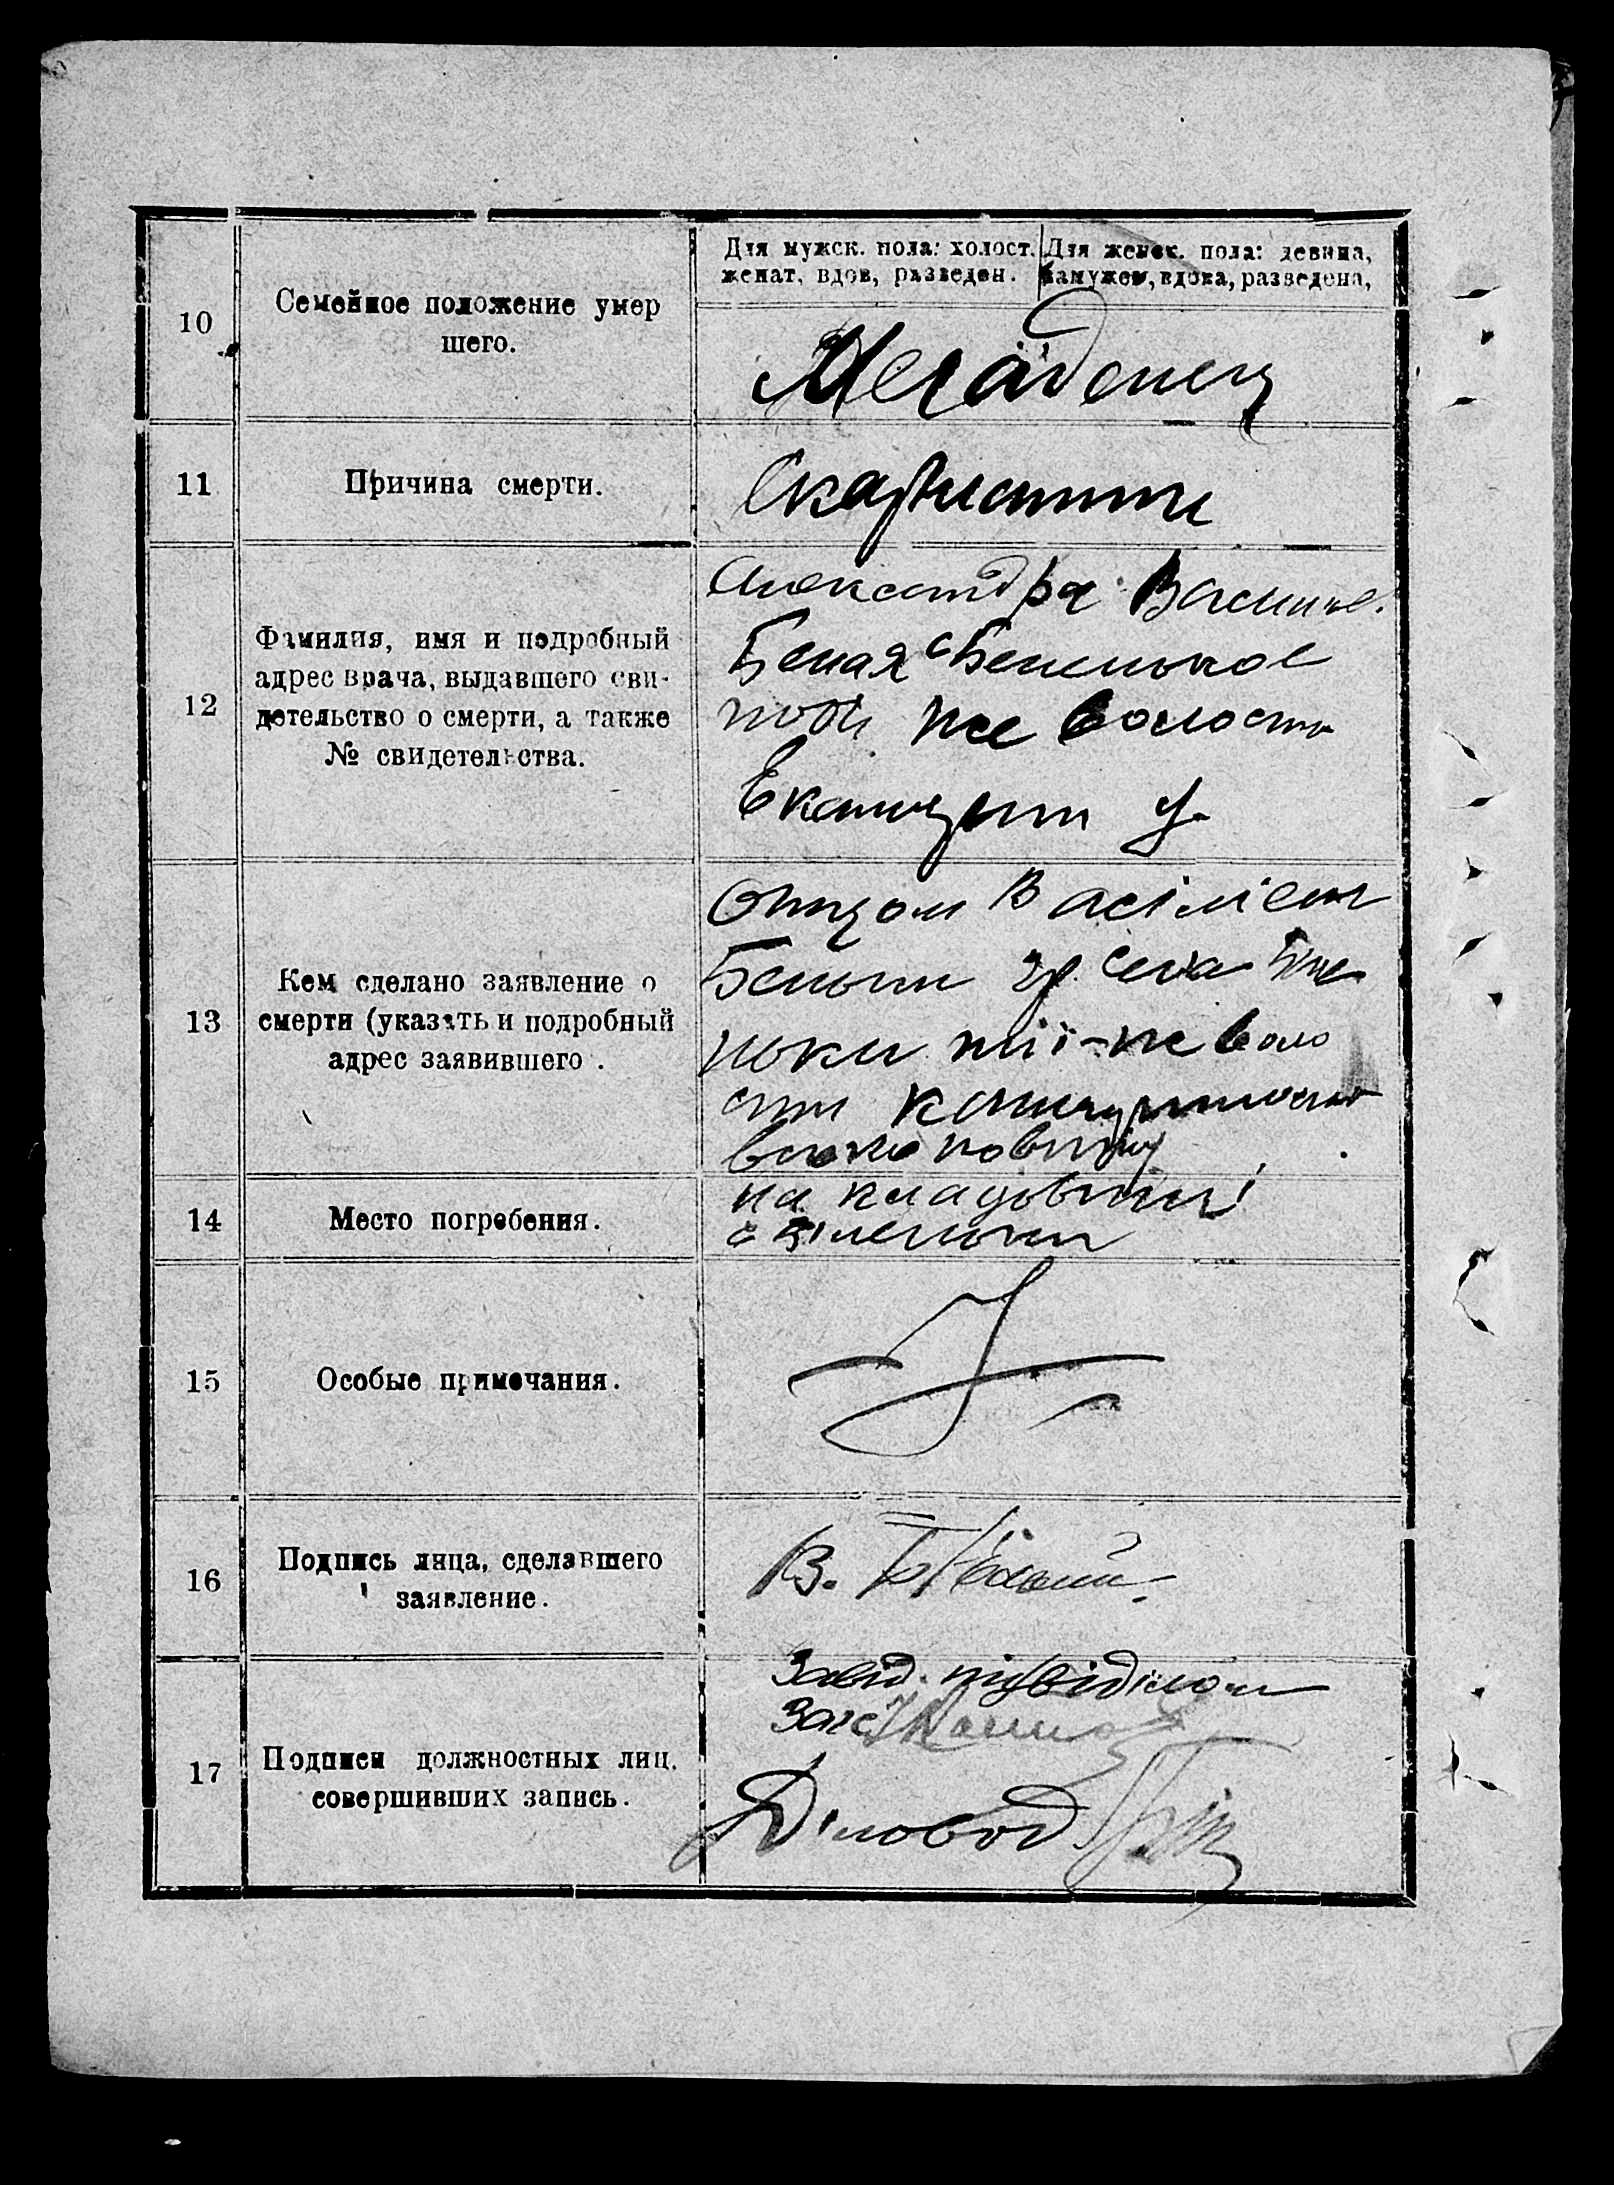 10
Семейное положение умер
шего.
Для мужск. пола: холост.
женат, вдов, разведен.
Для женск. пола: девица,
замужем, вдова, разведена,
Младенец
11
Причина смерти.
Скарлатини
12
Фамилия, имя и подробный
адрес врача, выдавшего сви-
детельство о смерти, а также
№ свидетельства.
Александра Василье.
Белая с Беленькое
той же волости
13
Кем сделано заявление о
смерти (указать и подробный
адрес заявившего.
Отцом Васілієм
Белым гр. села Біле
ньки тії-же воло
сти
14
Место погребения.
на кладовищі
с Біленьки
15
Особые примечания.
16
Подпись лица, сделавшего
заявление.
В. Білий
17
Подписи должностных лиц,
совершивших запись.
Завід. підвіділом
Загс
Діловод